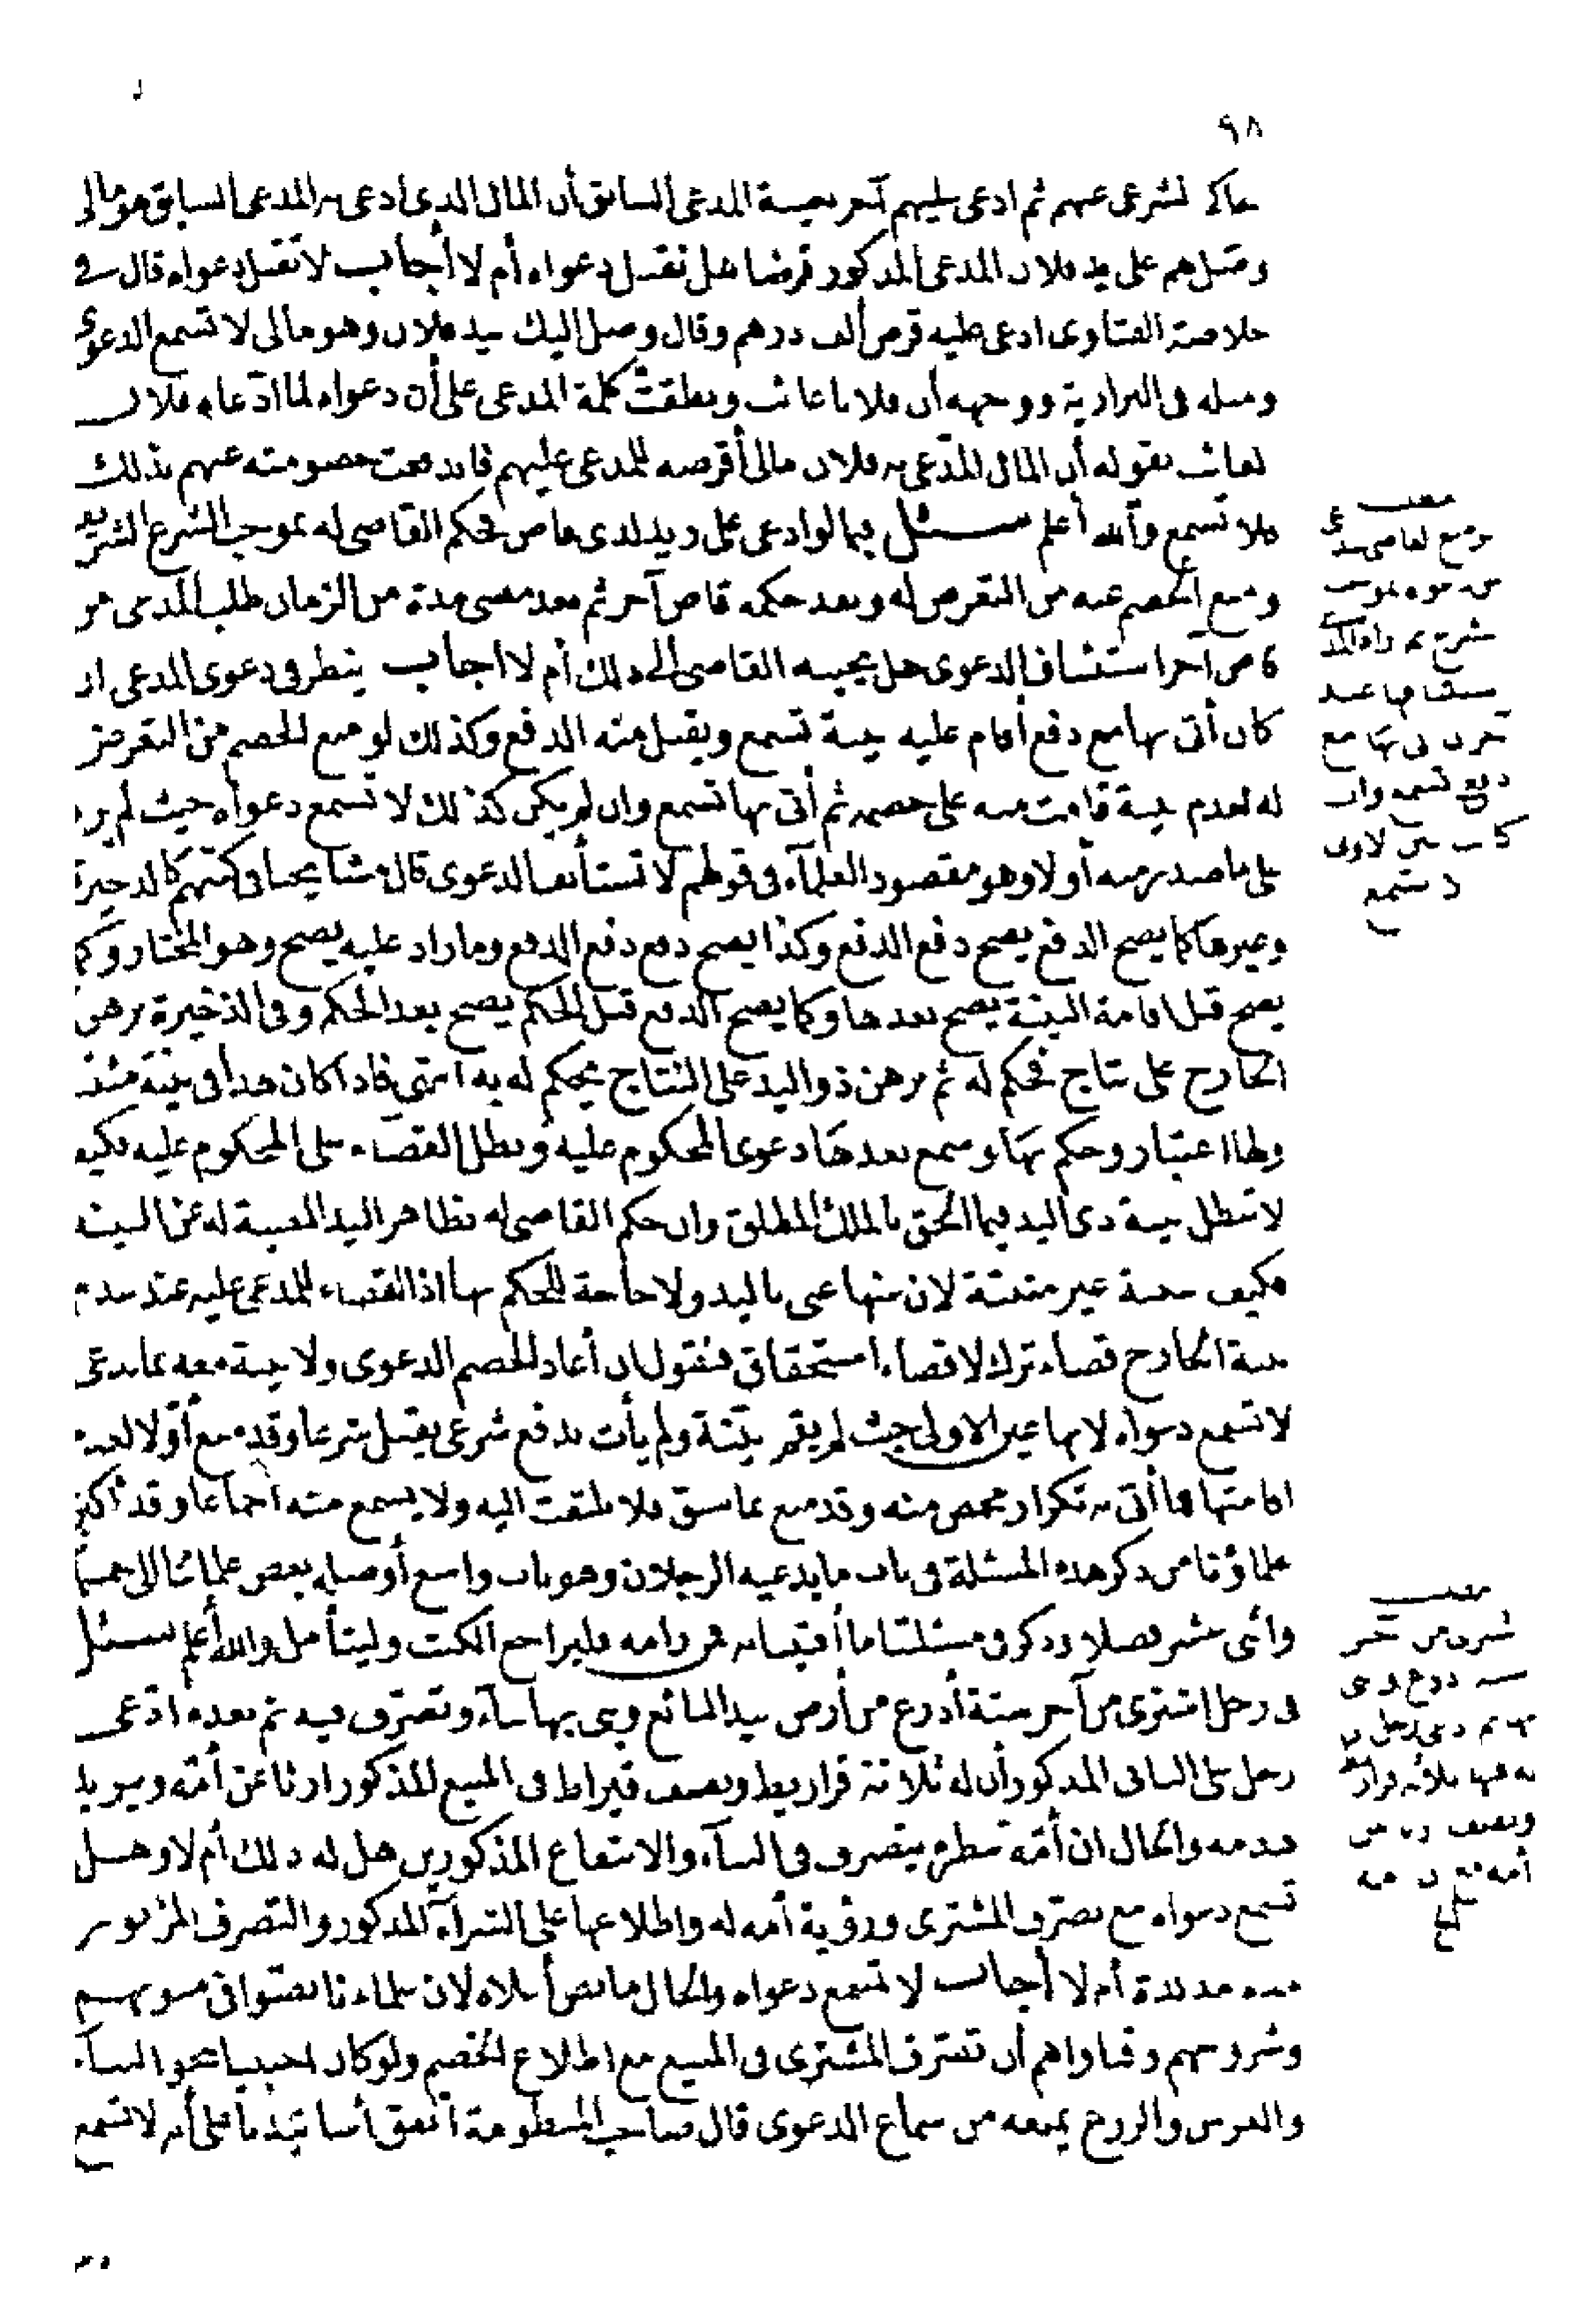 ٩٨
حاكم شرعى عنهم ثم ادعى عليهم آخر بغيبة المدعى السابق أن المال الذى ادعى به المدعى السابق هو مالى
وصل لهم على يد فلان المدعى المذكور قرضا هل تقبل دعواه أم لا أجاب لا تقبل دعواه قال فى
خلاصة الفتاوى ادعى عليه قرض ألف درهم وقال وصل اليك بيد فلان وهو مالى لا تسمع الدعوى
ومثله فى البزازية ووجهه أن فلانا غائب ونطقت كلمة المدعى على أن دعواه لما ادّعاه فلان
الغائب بقوله أن المال المدّعى به فلان مالى أقرضه للمدعى عليهم فاندفعت خصومته عنهم بذلك
فلا تسمع والله أعلم سئل فيما لو ادعى على زيد لدى قاض فحكم القاضى له بموجب الشرع الشريف
ومنع الخصم عنه من التعرض له وبعد حكمه قاض آخر ثم بعد مضى مدة من الزمان طلب المدعى من
قاض آخر استئناف الدعوى هل يجيبه القاضى الى ذلك أم لا اجاب ينظر فى دعوى المدعى ان
كان أتى بها مع دفع أقام عليه بينة تسمع ويقبل منه الدفع وكذلك لو منع الخصم من التعرض
له لعدم بينة قامت منه على خصمه ثم أتى بها تسمع وان لم يكن كذلك لا تسمع دعواه حيث لم يزد
على ما صدر منه أولا وهو مقصود العلمآء فى قولهم لا تستأنف الدعوى قال مشايخنا فى كتبهم كالذخيرة
وغيرها كما يصح الدفع يصح دفع الدفع وكذا يصح دفع دفع الدفع وما زاد عليه يصح وهو المختار وكما
يصح قبل اقامة البينة يصح بعدها وكما يصح الدفع قبل الحكم يصح بعد الحكم وفى الذخيرة برهن
الخارج على نتاج فحكم له ثم برهن ذو اليد على النتاج يحكم له به انتهى فاذا كان هذا فى بينة
ولها اعتبار وحكم بها وسمع بعدها دعوى المحكوم عليه وبطل القضاء على المحكوم عليه فكيف
لا تبطل بينة ذى اليد فيما الحق بالملك المطلق وان حكم القاضى له بظاهر اليد المغنية له عن البينة
فكيف ببينة غير مثبتة لانه منها غنى باليد ولا حاجة للحكم بها اذ القضاء للمدعى عليه عند عدم
بينة الخارج قضاء ترك لا قضاء استحقاق فنقول ان أعاد الخصم الدعوى ولا بينة معه بما يدعى
لا تسمع دعواه لانها عين الاولى حيث لم يقم بيّنة ولم يأت بدفع شرعى يقبل شرعا وقد منع أوّلا لعدم
اقامتها فما أتى به تكرار محض منه وقد منع بما سبق فلا يلتفت اليه ولا يسمع منه اجماعا وقد أكثر
علماؤنا من ذكر هذه المسئلة فى باب ما يدعيه الرجلان وهو باب واسع أوصله بعض علمائنا الى خمسمائة
واثنى عشر فصلا وذكر فى مسئلتنا ما أفتينا به فمن رامه فليراجع الكتب وليتأمل والله أعلم سئل
فى رجل اشترى من آخر ستة أذرع من أرض بيد البائع وبنى بها بنآء وتصرّف فيه ثم بعده ادّعى
رجل على البانى المذكور أن له ثلاثة قراريط ونصف قيراط فى المبيع المذكور ارثا عن أمّه ويريد
هدمه والحال ان أمّه تنظره يتصرف فى البنآء والانتفاع المذكورين هل له ذلك أم لا وهل
تسمع دعواه مع تصرّف المشترى ورؤية أمه له واطلاعها على الشرآء المذكور والتصرف المزبور
مدة مديدة أم لا أجاب لا تسمع دعواه والحال ما نص أعلاه لان علماءنا نصّوا فى متونهم
وشروحهم وفتاواهم أن تصرّف المشترى فى المبيع مع اطلاع الخصم ولو كان اجنبيا بنحو البنآء
والغرس والزرع يمنعه من سماع الدعوى قال صاحب المنظومة اتفق أساتيذنا على أنه لا تسمع
مطلب
شرع ثم
مع
دفع تسمع وان
لا تسمع
مطلب
ستة
ثلاثة قراريط
ونصف
أمه